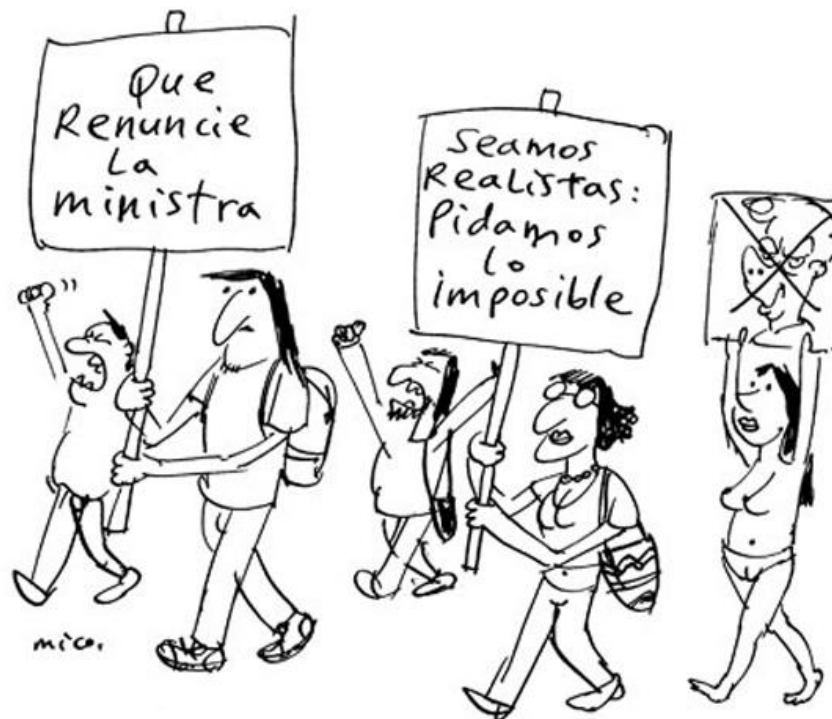 Que
Renuncie
La
ministra
Seamos
Realistas:
Pidamos
lo
imposible
mico.